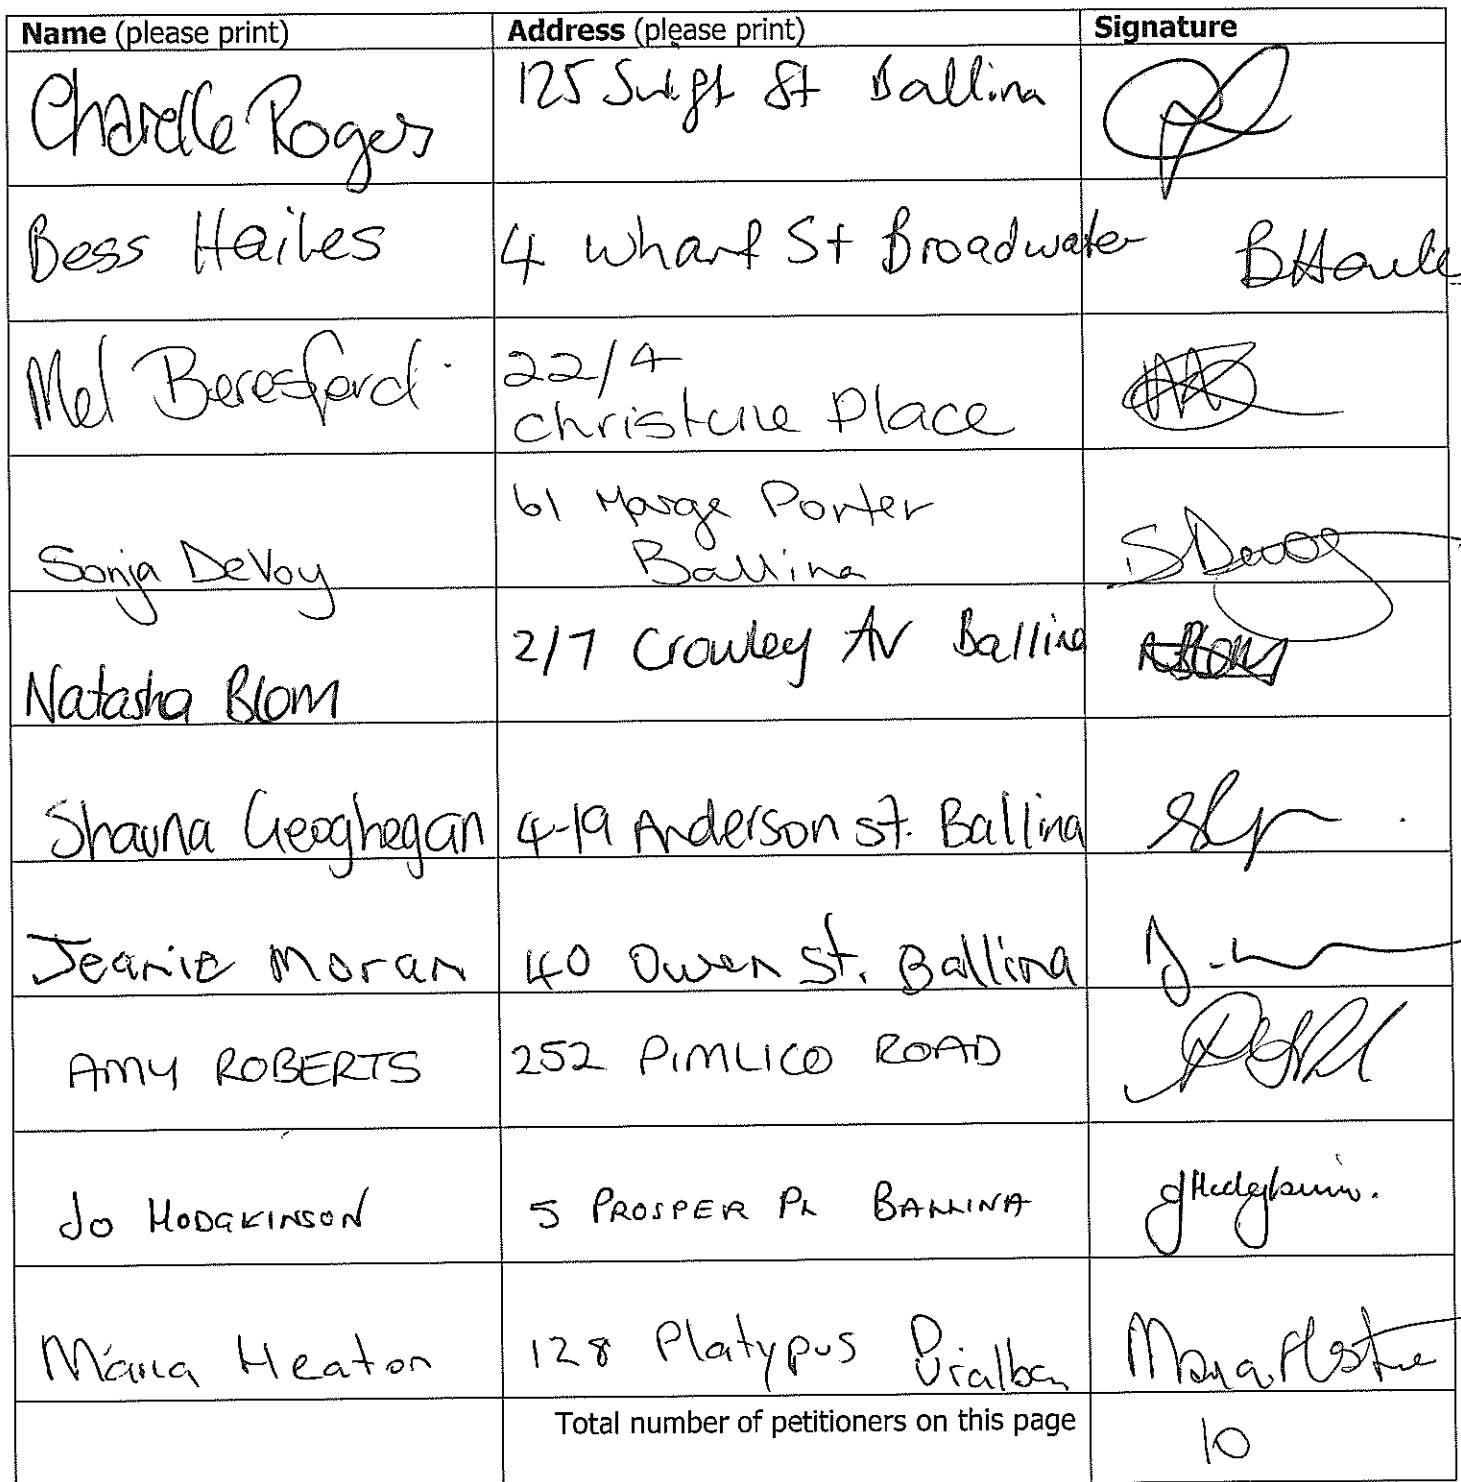 Name (please print) Address (please print) Signature
Charelle Rogers 125 Swift St Ballina
Bess Hailes 4 Wharf St Broadwater
Mel Beresford 22/4
Christine Place
61 Marge Porter
Ballina
Sonja DeVoy S Devoy
2/7 Crowley Av Ballina
Natasha Blom
Shauna Geoghegan 4-19 Anderson st. Ballina
Jeanie Moran 40 Owen St. Ballina
AMY ROBERTS 252 PIMLICO ROAD
Jo HODGKINSON 5 PROSPER PL BALLINA
Maria Heaton 128 Platypus
Total number of petitioners on this page 10